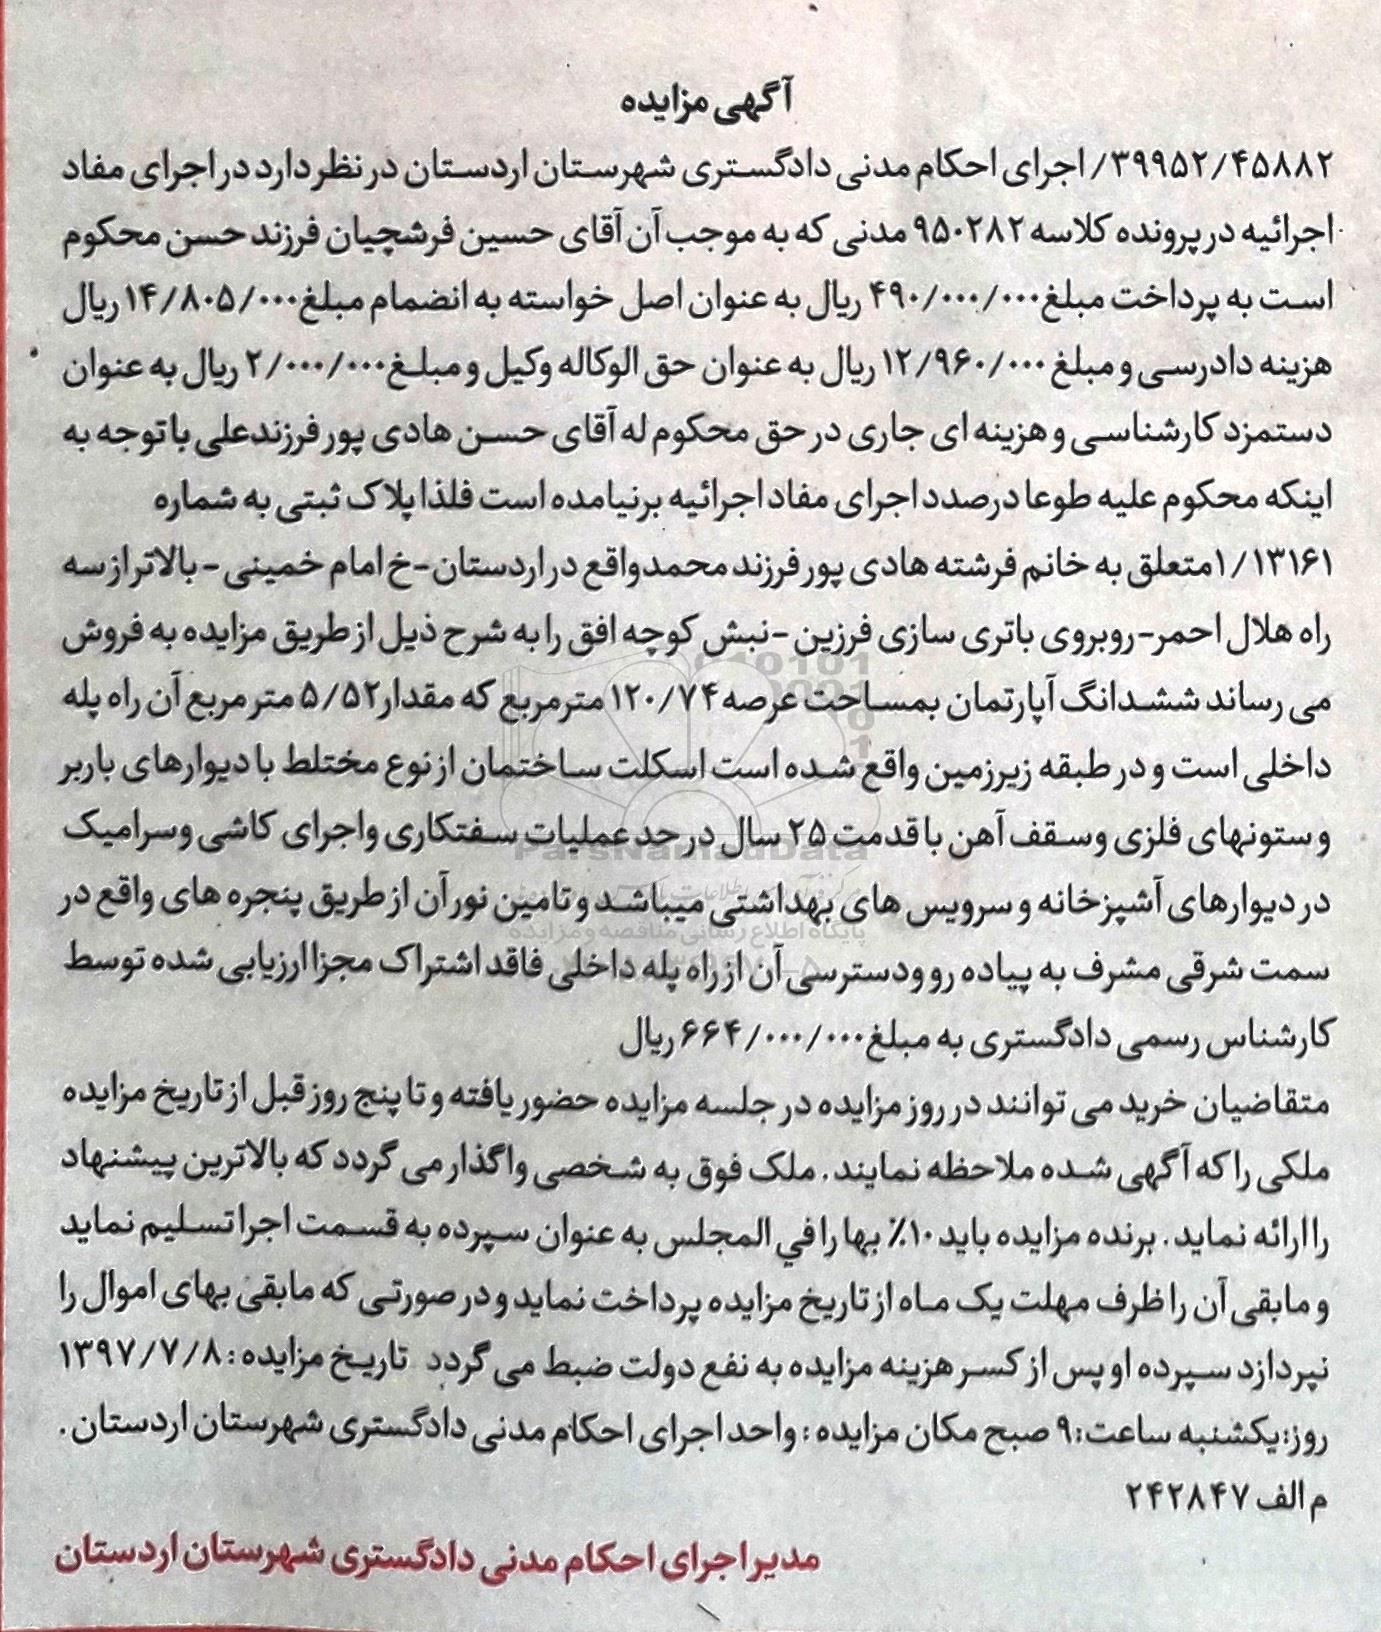 آگهی مزایده
۳۹۹۵۲/۴۵۸۸۲/ اجرای احکام مدنی دادگستری شهرستان اردستان در نظر دارد در اجرای مفاد
اجرائیه در پرونده کلاسه ۹۵۰۲۸۲ مدنی که به موجب آن آقای حسین فرشچیان فرزند حسن محکوم
است به پرداخت مبلغ ۴۹۰/۰۰۰/۰۰۰ ریال به عنوان اصل خواسته به انضمام مبلغ ۱۴/۸۰۵/۰۰۰ ریال
هزینه دادرسی و مبلغ ۱۲/۹۶۰/۰۰۰ ریال به عنوان حق الوکاله وکیل و مبلغ ۲/۰۰۰/۰۰۰ ریال به عنوان
دستمزد کارشناسی و هزینه ای جاری در حق محکوم له آقای حسن هادی پور فرزند علی با توجه به
اینکه محکوم علیه طوعا درصدد اجرای مفاد اجرائیه برنیامده است فلذا پلاک ثبتی به شماره
۱/۱۳۱۶۱ متعلق به خانم فرشته هادی پور فرزند محمد واقع در اردستان-خ امام خمینی - بالاتر از سه
راه هلال احمر-روبروی باتری سازی فرزین -نبش کوچه افق را به شرح ذیل از طریق مزایده به فروش
می رساند ششدانگ آپارتمان بمساحت عرصه ۱۲۰/۷۴ مترمربع که مقدار ۵/۵۲ متر مربع آن راه پله
داخلی است و در طبقه زیرزمین واقع شده است اسکلت ساختمان از نوع مختلط با دیوارهای باربر
و ستونهای فلزی وسقف آهن با قدمت ۲۵ سال در حد عملیات سفتکاری واجرای کاشی وسرامیک
در دیوارهای آشپزخانه و سرویس های بهداشتی میباشد و تامین نور آن از طریق پنجره های واقع در
سمت شرقی مشرف به پیاده رو ودسترسی آن از راه پله داخلی فاقد اشتراک مجزا ارزیابی شده توسط
کارشناس رسمی دادگستری به مبلغ ۶۶۴/۰۰۰/۰۰۰ ریال
متقاضیان خرید می توانند در روز مزایده در جلسه مزایده حضور یافته و تا پنج روز قبل از تاریخ مزایده
ملکی را که آگهی شده ملاحظه نمایند. ملک فوق به شخصی واگذار می گردد که بالاترین پیشنهاد
را ارائه نماید. برنده مزایده باید ۱۰٪ بها را في المجلس به عنوان سپرده به قسمت اجرا تسلیم نماید
و مابقی آن را ظرف مهلت یک ماه از تاریخ مزایده پرداخت نماید و در صورتی که مابقی بهای اموال را
نپردازد سپرده او پس از کسر هزینه مزایده به نفع دولت ضبط می گردد تاریخ مزایده: ۱۳۹۷/۷/۸
روز: یکشنبه ساعت: ۹ صبح مکان مزایده: واحد اجرای احکام مدنی دادگستری شهرستان اردستان.
م الف ۲۴۲۸۴۷
مدیر اجرای احکام مدنی دادگستری شهرستان اردستان
ParsNamadData
پایگاه اطلاع رسانی مناقصه و مزایده